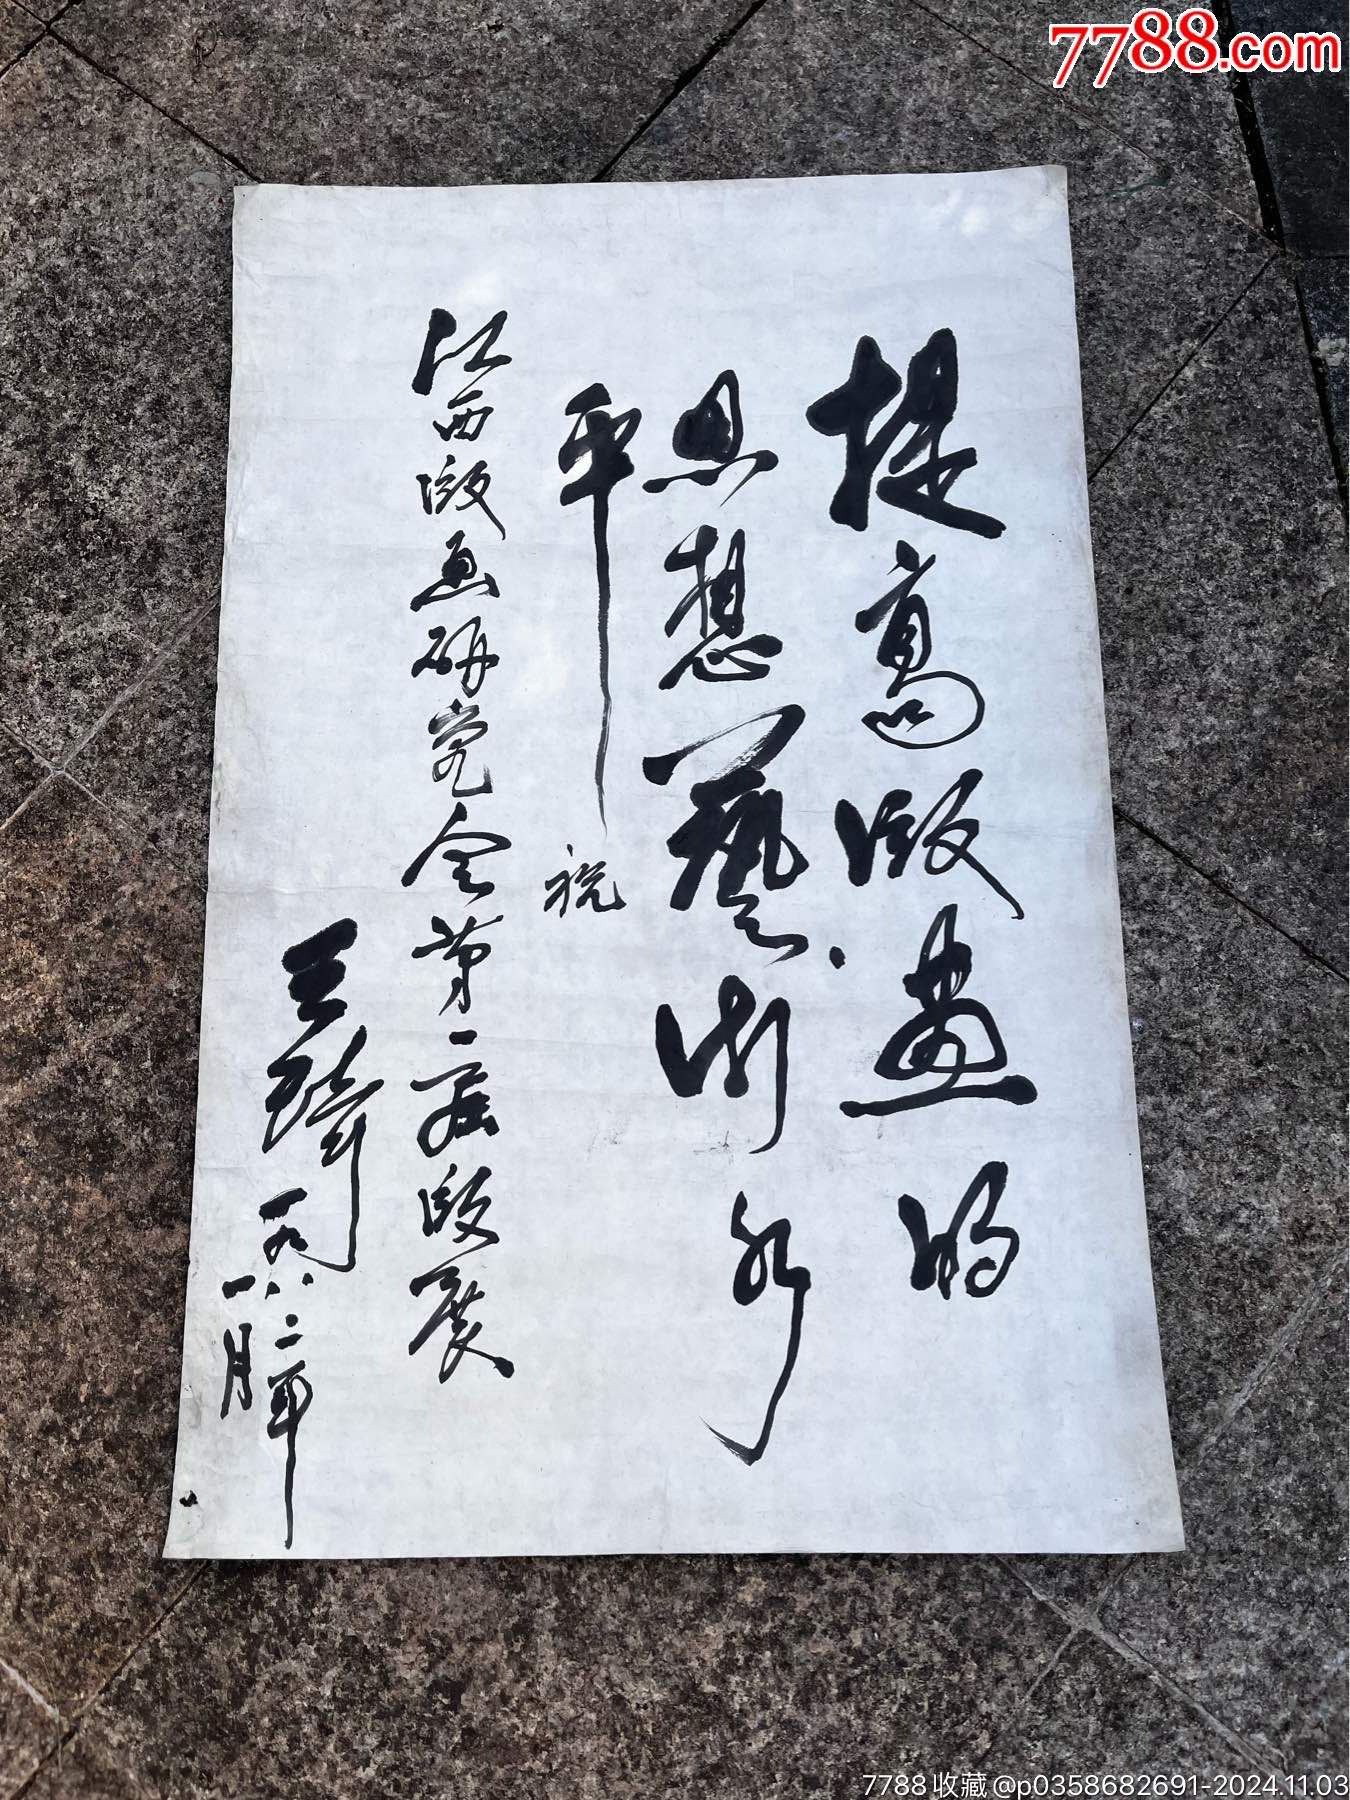 7788.com
提高版画的
思想藝術水
平
祝
江西版画研究会第一届版展
王琦
一九八二年
一月
7788收藏@p0358682691-2024.11.03